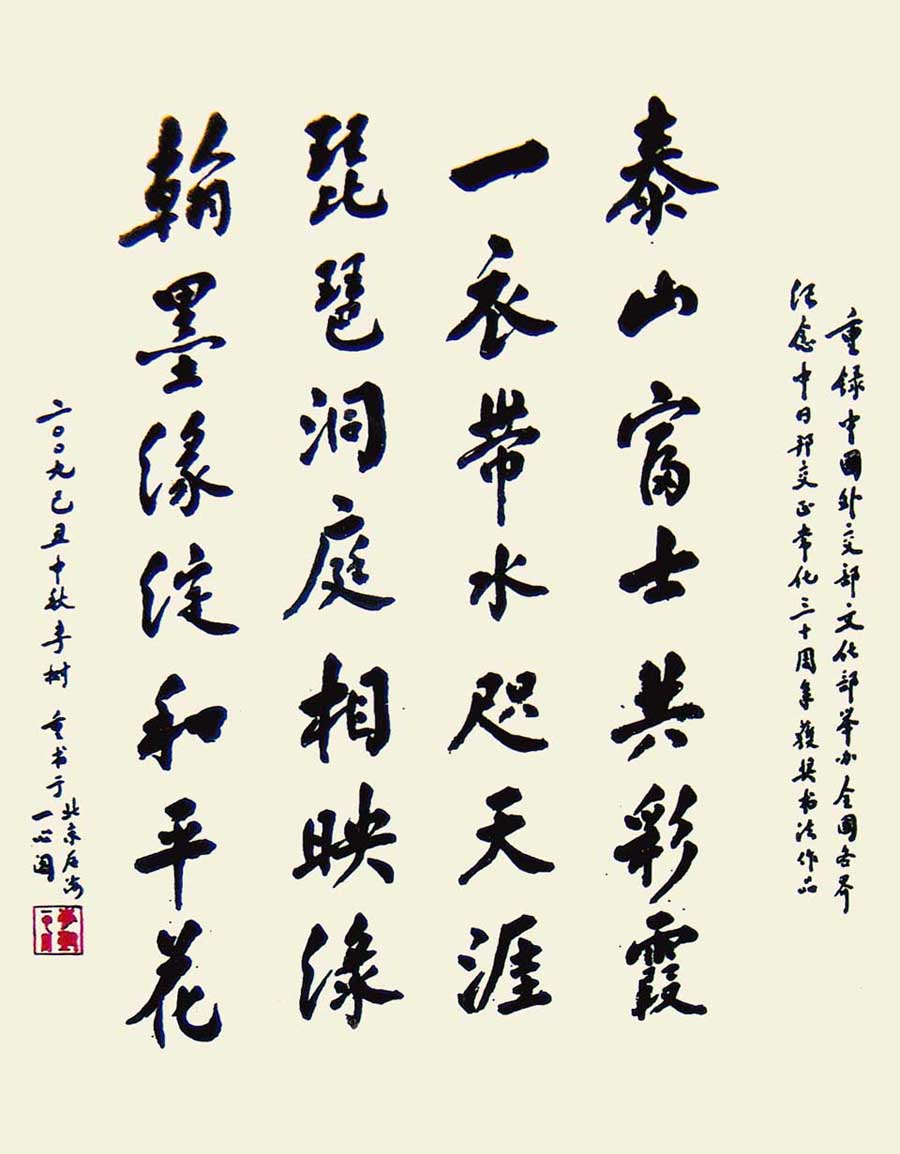 重録中國外交部文化部举办全國各界
纪念中日邦交正常化三十周年獲奖书法作品
泰山富士共彩霞
一衣帶水咫天涯
琵琶洞庭相映緑
翰墨缘绽和平花
二〇〇九己丑中秋李树 重书于
北京后海
一心阁